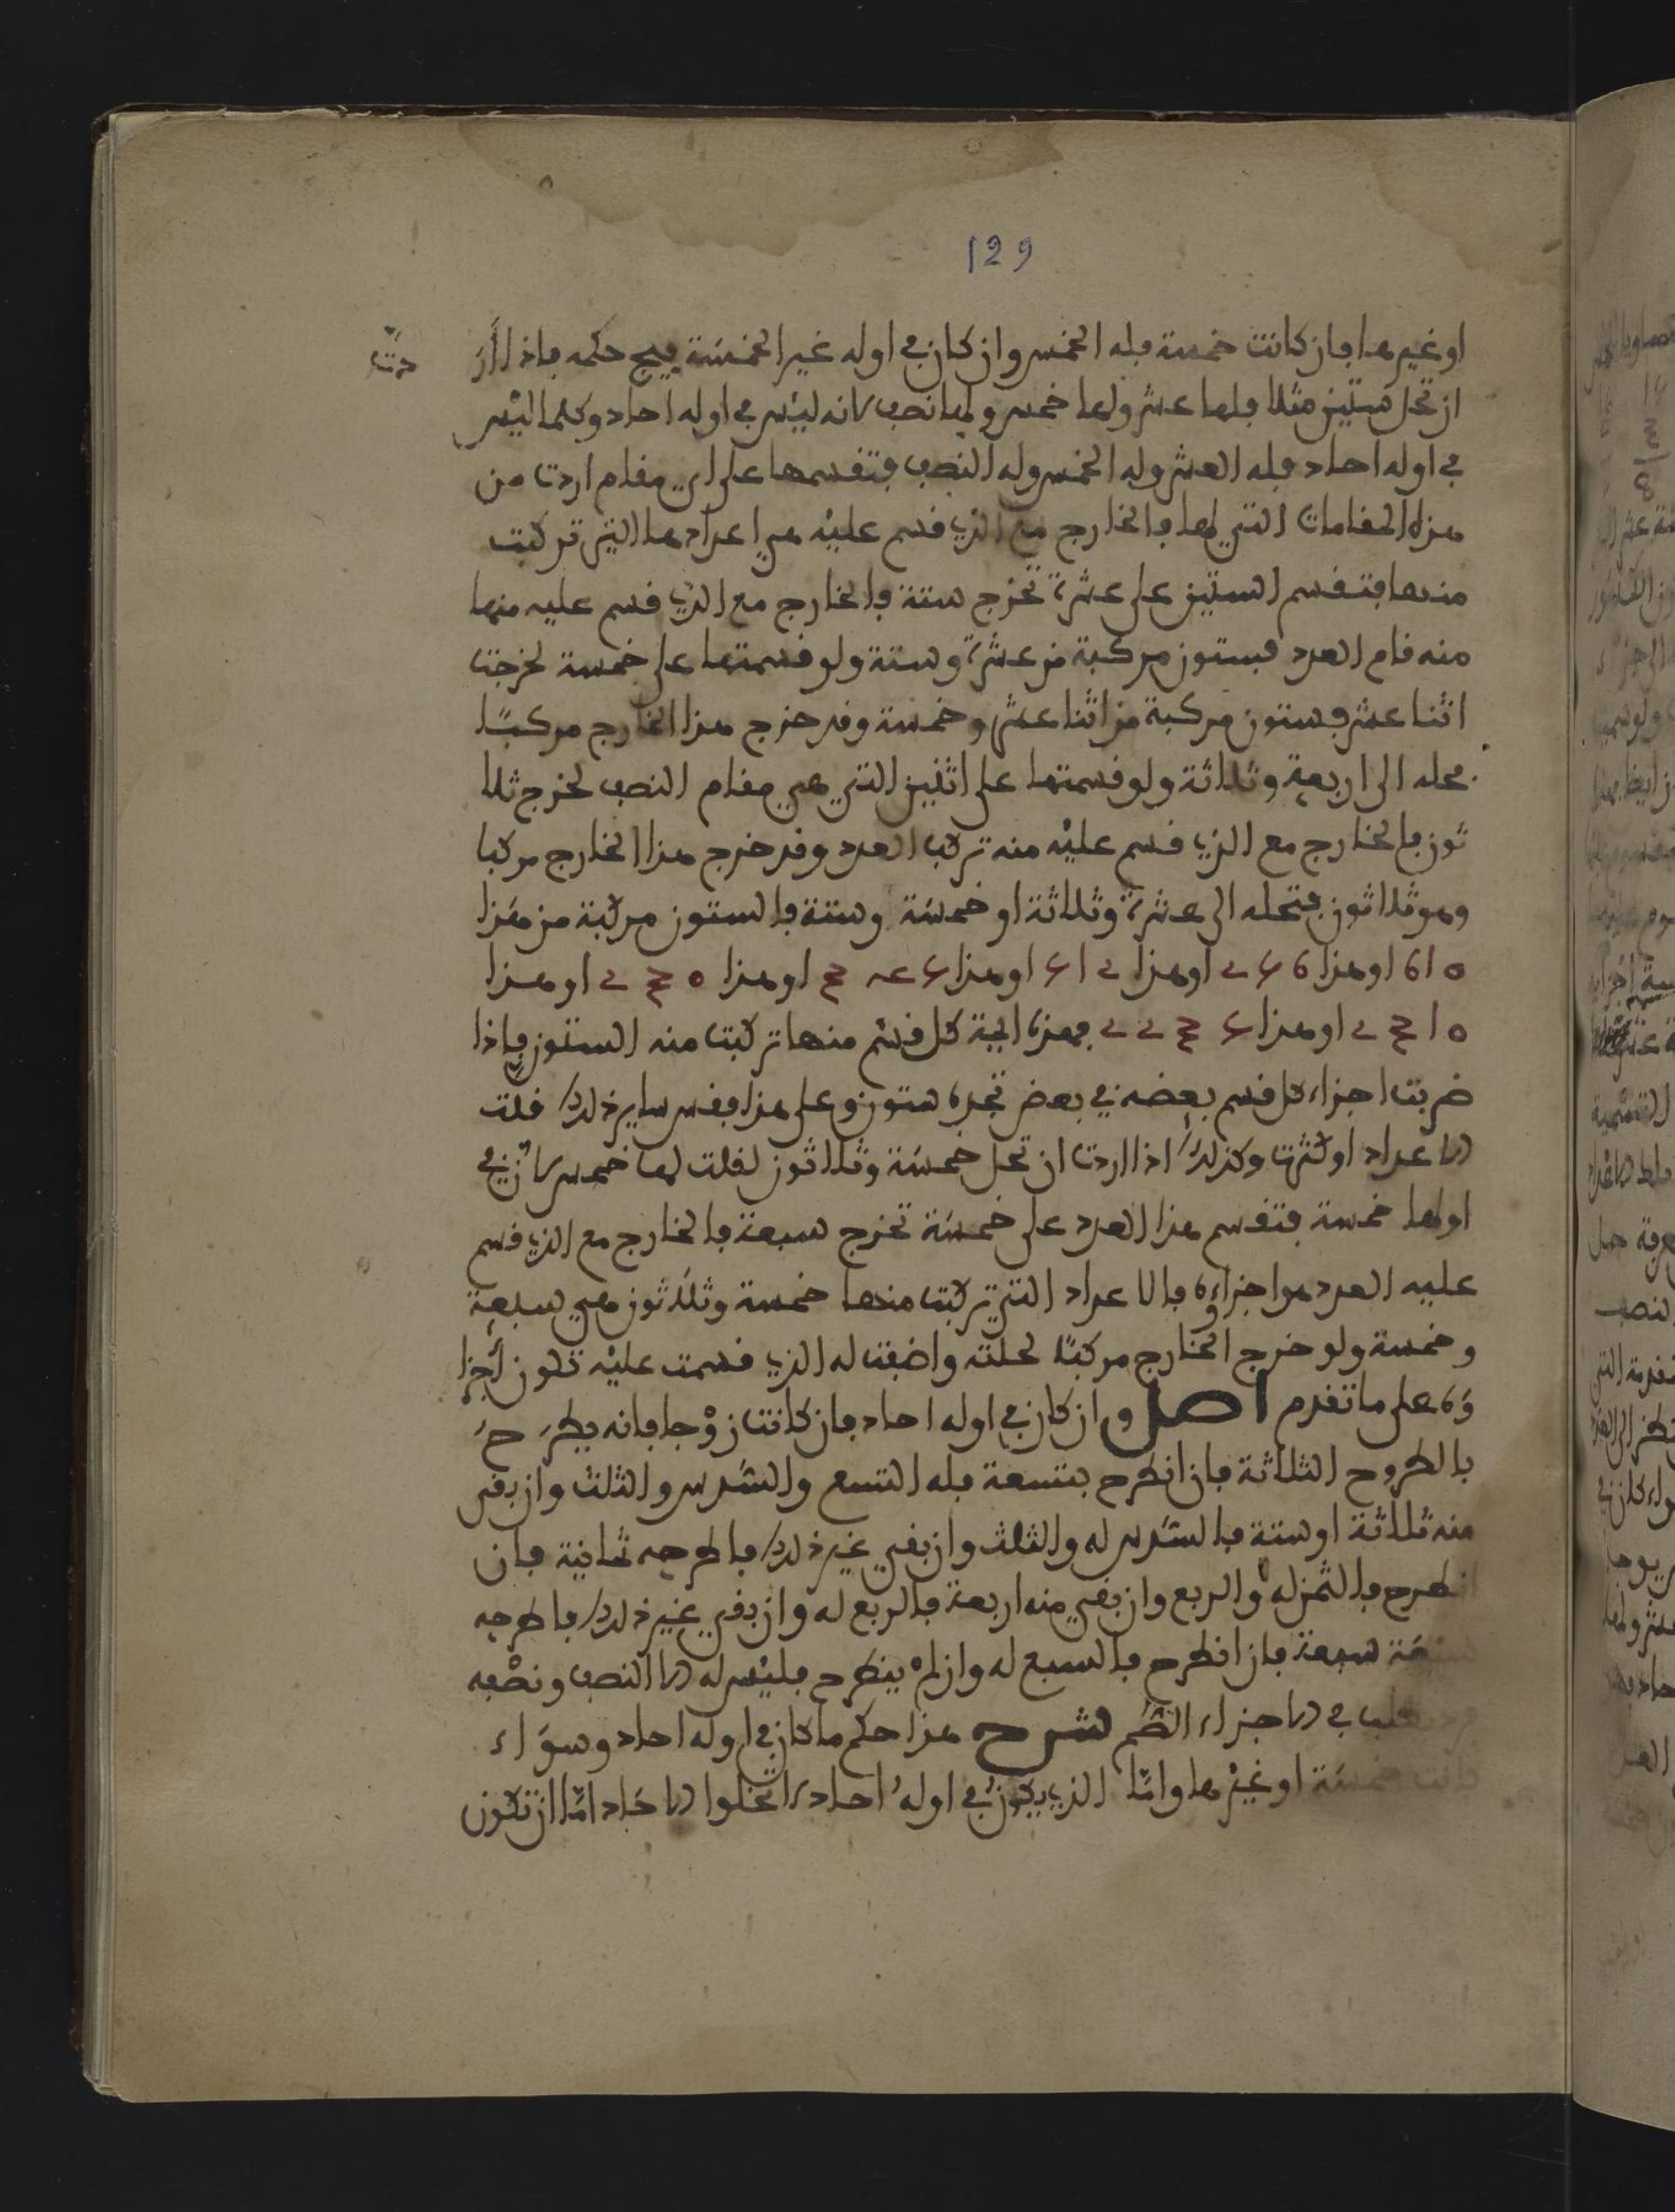 129
او غيرها فان كانت خمسة فله الخمس وان كان في اوله غير الخمسة يجيء حكمه فاذا ار دت
ان تحل ستين مثلا فلها عشر ولها خمس ولها نصف لانه ليس في اوله احاد وكلما ليس
في اوله احاد فله العشر وله الخمس وله النصف فتقسمها على اي مقام اردت من
هذه المقامات التي لها فالخارج مع الذي قسم عليه هي اعدادها التي تركبت
منها فتقسم الستين على عشرة تخرج ستة فالخارج مع الذي قسم عليه منها
منه قام العدد فستون مركبة من عشرة وستة ولو قسمتها على خمسة لخرجت
اثنا عشر فستون مركبة من اثنا عشر وخمسة وقد خرج هذا الخارج مركبًا
فحله الى اربعة وثلاثة ولو قسمتها على اثنين التي هي مقام النصف لخرج ثلا
ثون فالخارج مع الذي قسم عليه منه تركب العدد وقد خرج هذا الخارج مركبا
وهو ثلاثون فتحله الى عشرة وثلاثة او خمسة وستة فالستون مركبة من هذا
او هذا او هذا او هذا او هذا او هذا
او هذا فهذه كل قسم منها تركبت منه الستون فاذا
ضربت اجزاء كل قسم بعضه في بعض تجده ستون وعلى هذا فقس ساير ذلك قلت
الاعداد او كثرت وكذلك اذا اردت ان تحل خمسة وثلاثون لقلت لها خمس لان في
اولها خمسة فتقسم هذا العدد على خمسة تخرج سبعة فالخارج مع الذي قسم
عليه العدد هو اجزاءوه فالاعداد التي تركبت منها خمسة وثلاثون هي سبعة
وخمسة ولو خرج الخارج مركبًا لحلته واضفت له الذي قسمت عليه تكون أجزا
ؤه على ما تقدم اصل وان كان في اوله احاد فان كانت زوْجا فانه يطرَحَ
بالطروح الثلاثة فان انطرح بتسعة فله التسع والسّدس والثلث وان بقي
منه ثلاثة او ستة فالسّدس له والثلث وان بقي غير ذلك فاطرحه ثمانية فان
انطرح فالثمن له والربع وان بقي منه اربعة فالربع له وان بقي غير ذلك فاطرحه
سبعة فان انطرح فالسبع له وان لم ينطرح فليس له الا النصف ونصْفه
في الاجزاء الصّم شرح هذا حكم ما كان في اوله احاد وسوَاء
كانت خمسة او غيْرها وامّا الذي يكون في اوله احاد لا تخلوا الاحَاد امّا ان تكون